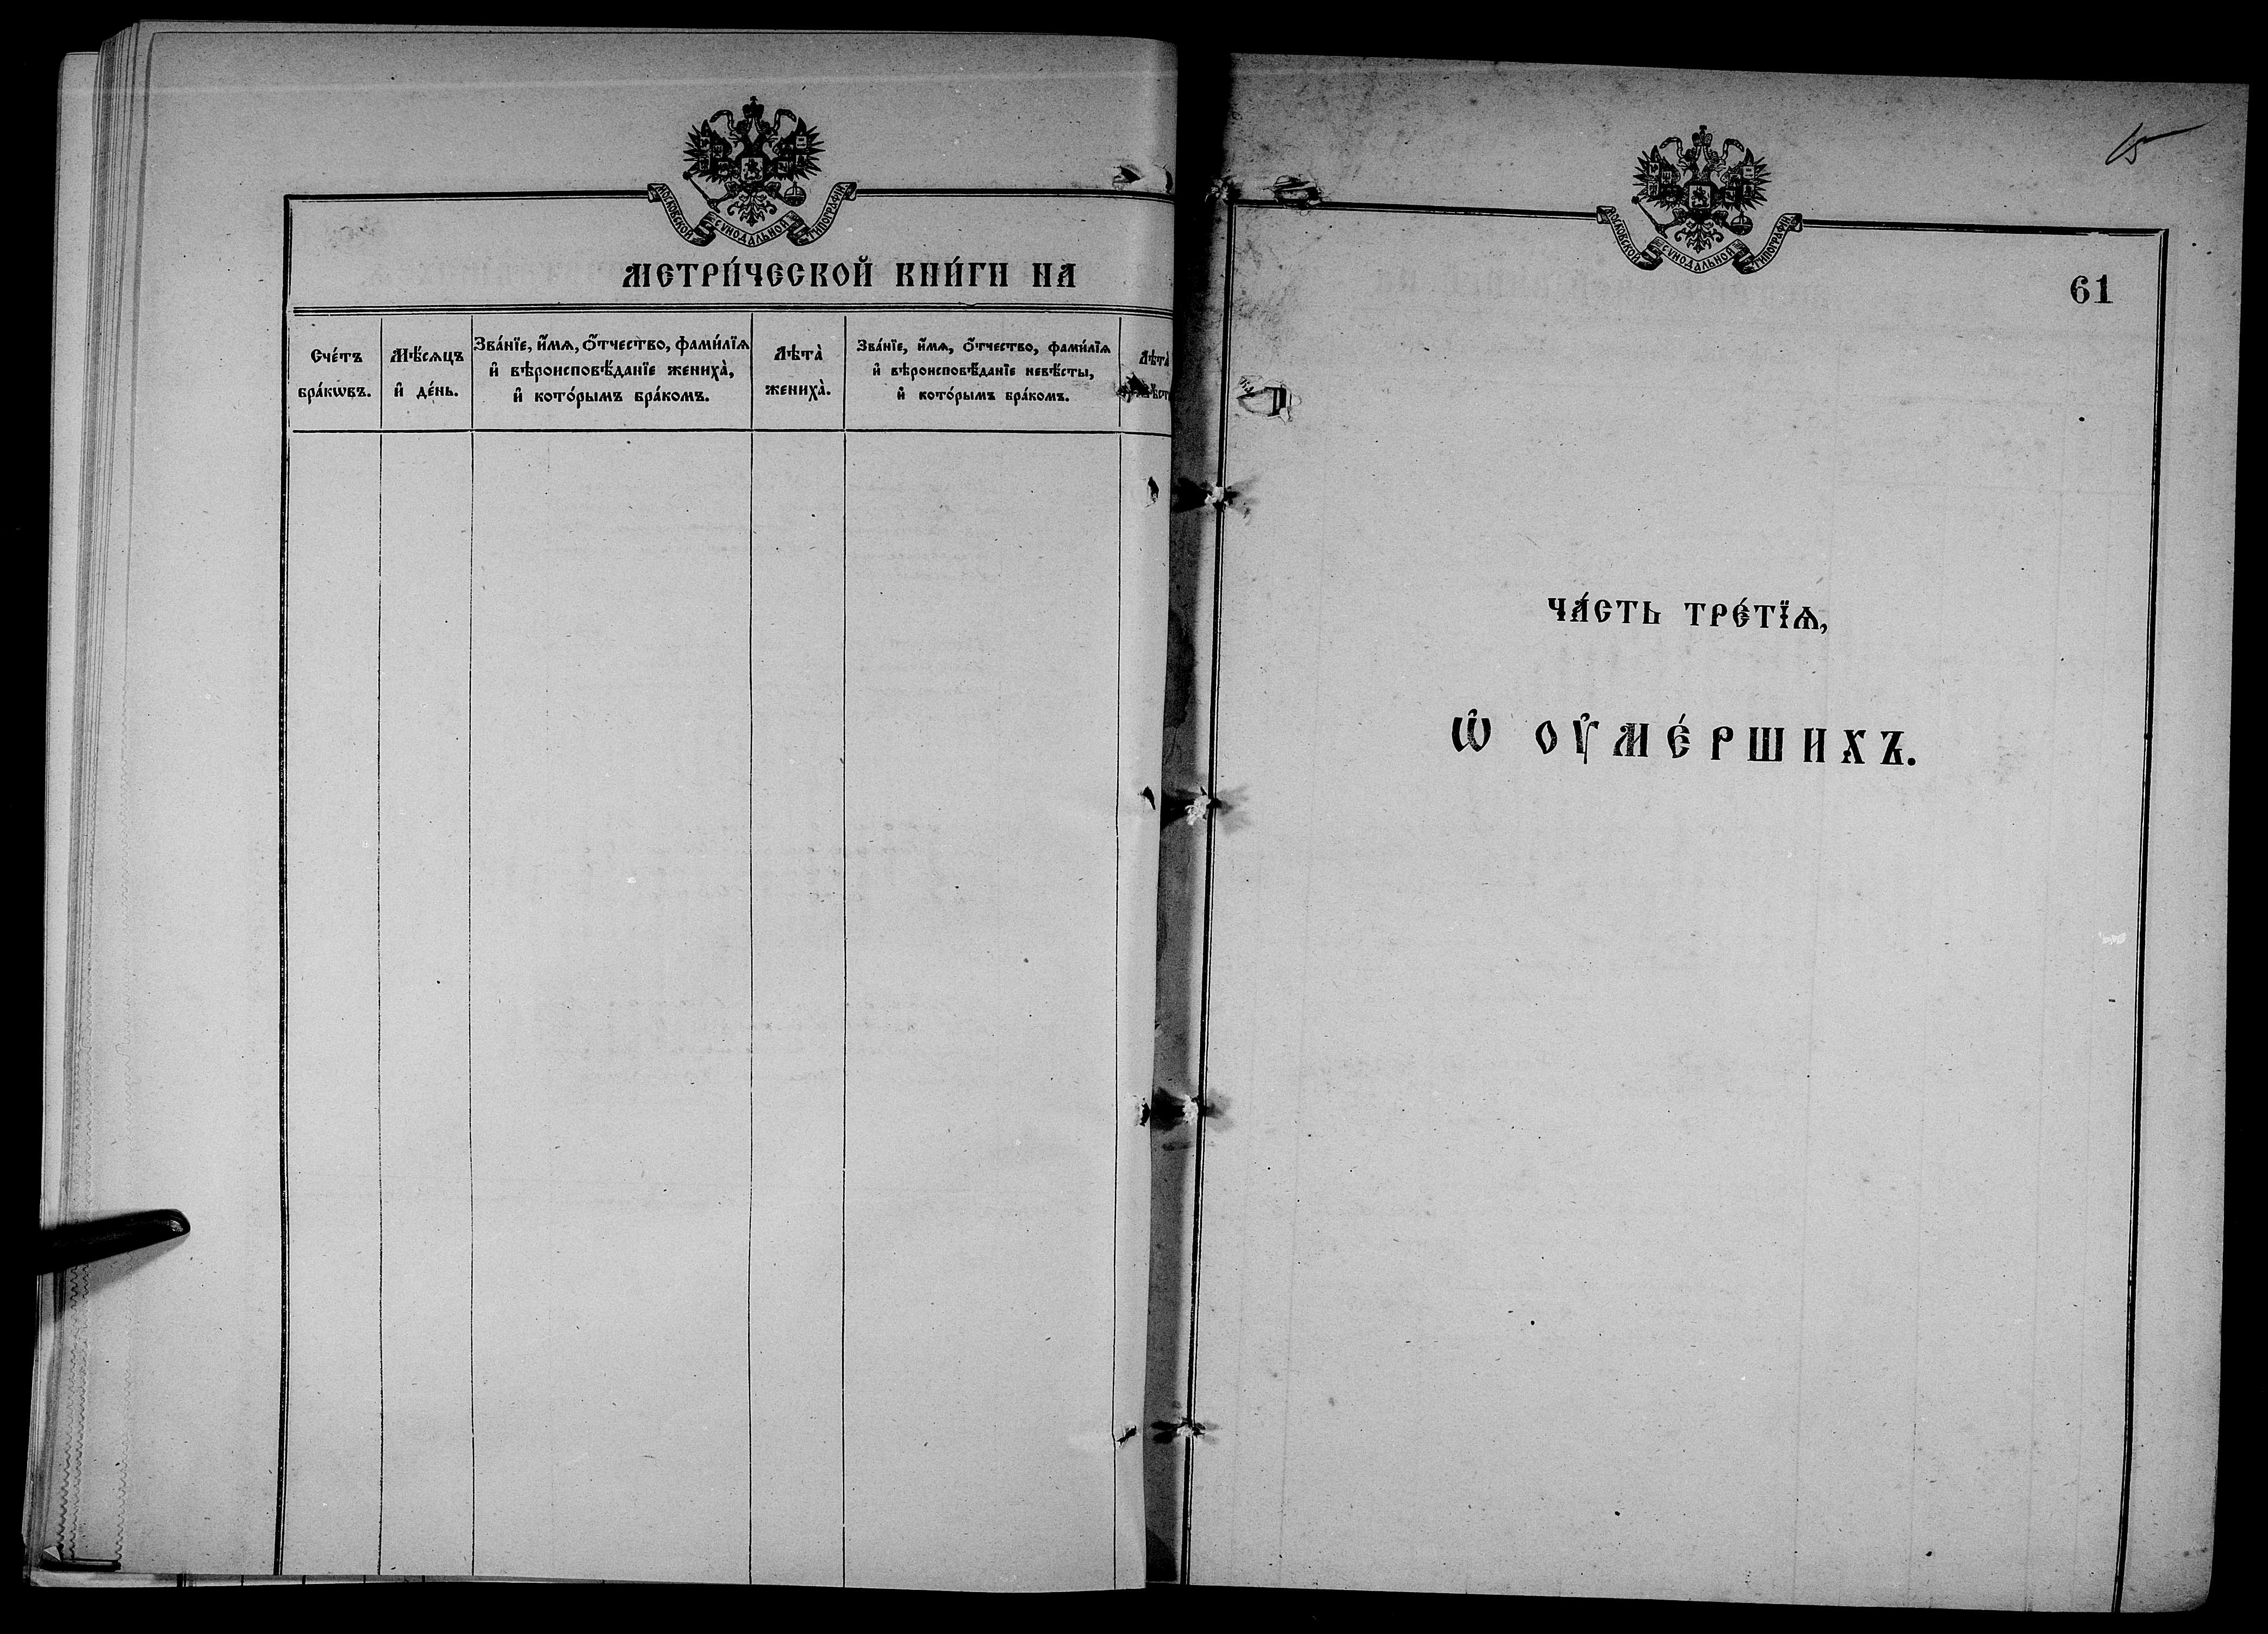 МОСКОВСКОЙ СѴНОДАЛЬНОЙ ТИПОГРАФІИ
МЕТРИ́ЧЕСКОЙ КНИ́ГИ НА
Сче́тъ бра́кѡвъ.
Мѣ́сѧцъ и҆ де́нь.
Зва́нїе, и҆́мѧ, ѻ҆́тчество, фами́лїѧ
и҆ вѣроисповѣ́данїе жениха̀,
и҆ кото́рымъ бра́комъ.
Лѣта̀
жениха̀.
Зва́нїе, и҆́мѧ, ѻ҆́тчество, фами́лїѧ
и҆ вѣроисповѣ́данїе невѣ́сты,
и҆ кото́рымъ бра́комъ.
Лѣта̀
МОСКОВСКОЙ СѴНОДАЛЬНОЙ ТИПОГРАФІИ
61
ЧА́СТЬ ТРЕ́ТЇѦ,
Ѡ҆ ОУ҆МЕ́РШИХЪ.